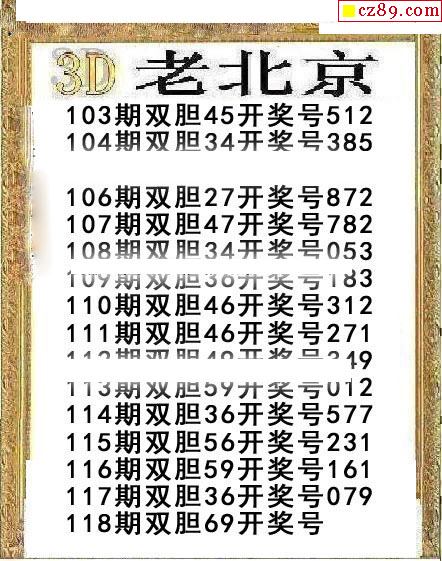 cz89.com
3D 老北京
103期双胆45开奖号512
104期双胆34开奖号385
106期双胆27开奖号872
107期双胆47开奖号782
108期双胆34开奖号053
109期双胆36开奖号183
110期双胆46开奖号312
111期双胆46开奖号271
112期双胆49开奖号349
113期双胆59开奖号012
114期双胆36开奖号577
115期双胆56开奖号231
116期双胆59开奖号161
117期双胆36开奖号079
118期双胆69开奖号